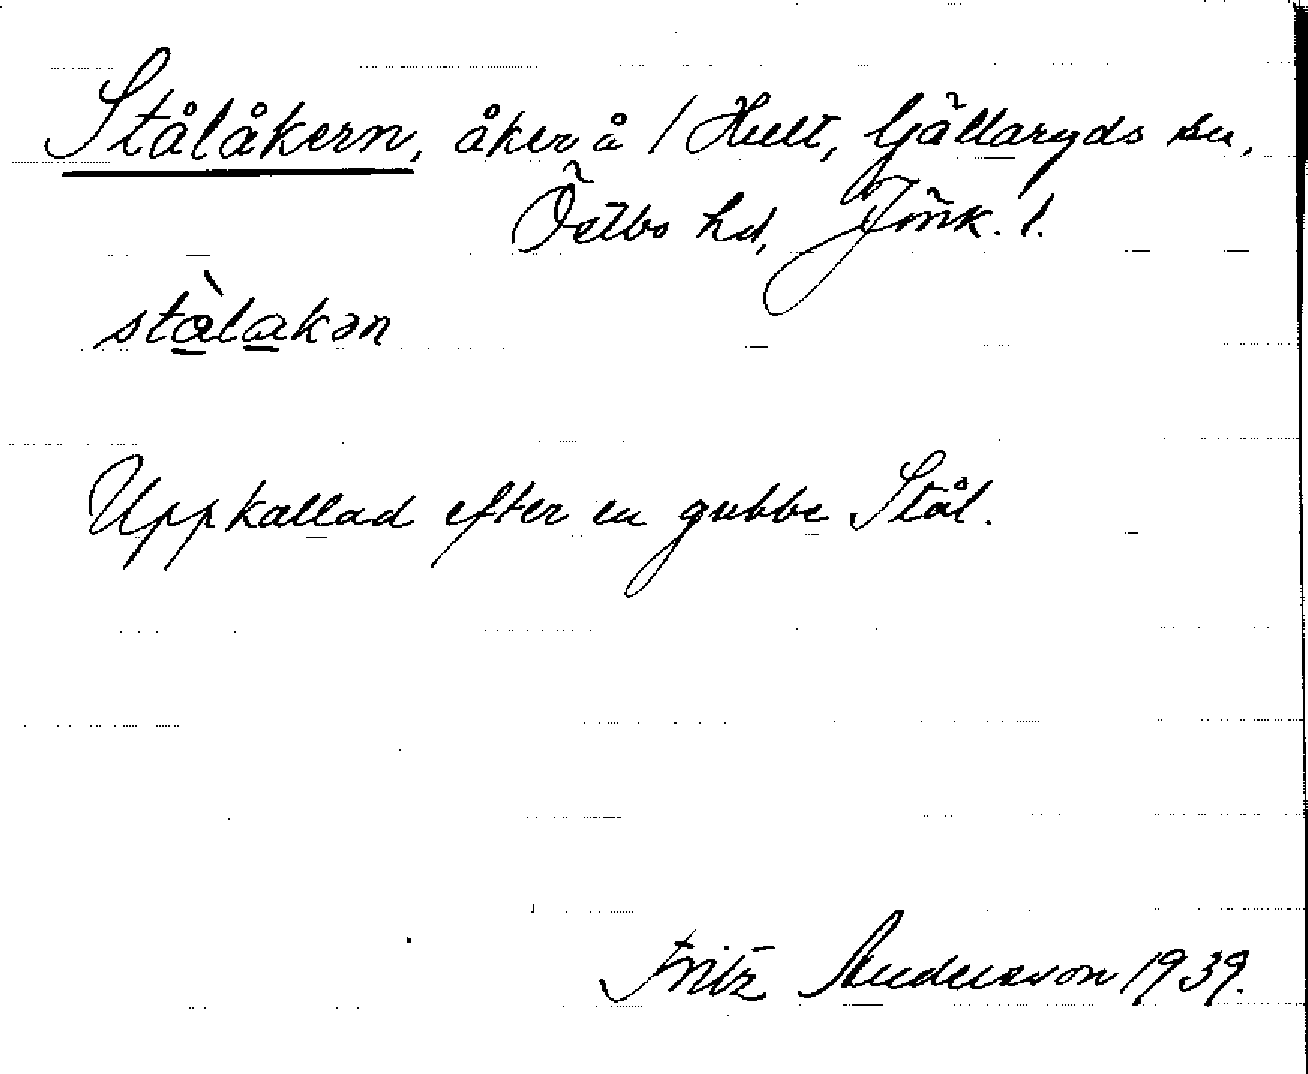 Stålåkern, åker å / Hult, Gällaryds sn,
Östbo hd, Jönk. l.
stàlakən
Uppkallad efter en gubbe Stål.
Fritz Andersson 1939.